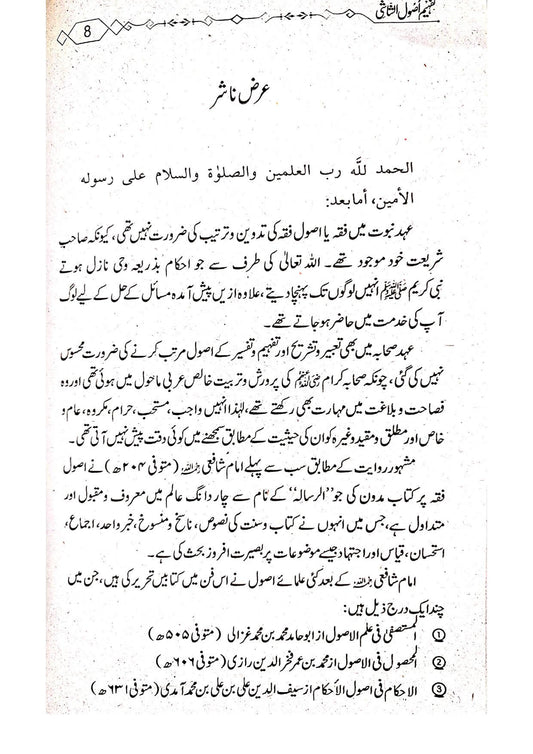 تفہیم اصول الشاشی
8
عرض ناشر
الحمد للّٰه رب العلمین والصلوٰة والسلام علی رسوله
الأمین، أمابعد:
عہد نبوت میں فقہ یا اصول فقہ کی تدوین و ترتیب کی ضرورت نہیں تھی، کیونکہ صاحب
شریعت خود موجود تھے۔ اللہ تعالیٰ کی طرف سے جو احکام بذریعہ وحی نازل ہوتے
نبی کریم ﷺ انہیں لوگوں تک پہنچا دیتے، علاوہ ازیں پیش آمدہ مسائل کے حل کے لیے لوگ
آپ کی خدمت میں حاضر ہو جاتے تھے۔
عہد صحابہ میں بھی تعبیر و تشریح اور تفہیم و تفسیر کے اصول مرتب کرنے کی ضرورت محسوس
نہیں کی گئی، چونکہ صحابہ کرام رضی اللہ عنہم کی پرورش و تربیت خالص عربی ماحول میں ہوئی تھی اور وہ
فصاحت و بلاغت میں مہارت بھی رکھتے تھے، لہٰذا انہیں واجب، مستحب، حرام، مکروہ، عام و
خاص اور مطلق و مقید وغیرہ کو ان کی حیثیت کے مطابق سمجھنے میں کوئی دقت پیش نہیں آتی تھی۔
مشہور روایت کے مطابق سب سے پہلے امام شافعی رحمہ اللہ (متوفی ۲۰۴ھ) نے اصول
فقہ پر کتاب مدون کی جو ”الرسالہ“ کے نام سے چار دانگ عالم میں معروف و مقبول اور
متداول ہے، جس میں انہوں نے کتاب و سنت کی نصوص، ناسخ و منسوخ، خبر واحد، اجماع،
استحسان، قیاس اور اجتہاد جیسے موضوعات پر بصیرت افروز بحث کی ہے۔
امام شافعی رحمہ اللہ کے بعد کئی علمائے اصول نے اس فن میں کتابیں تحریر کی ہیں، جن میں
چند ایک درج ذیل ہیں:
① المستصفیٰ فی علم الاصول از ابو حامد محمد بن محمد غزالی (متوفی ۵۰۵ھ)
② المحصول فی الاصول از محمد بن عمر فخر الدین رازی (متوفی ۶۰۶ھ)
③ الاحکام فی اصول الأحکام از سیف الدین علی بن علی بن محمد آمدی (متوفی ۶۳۱ھ)